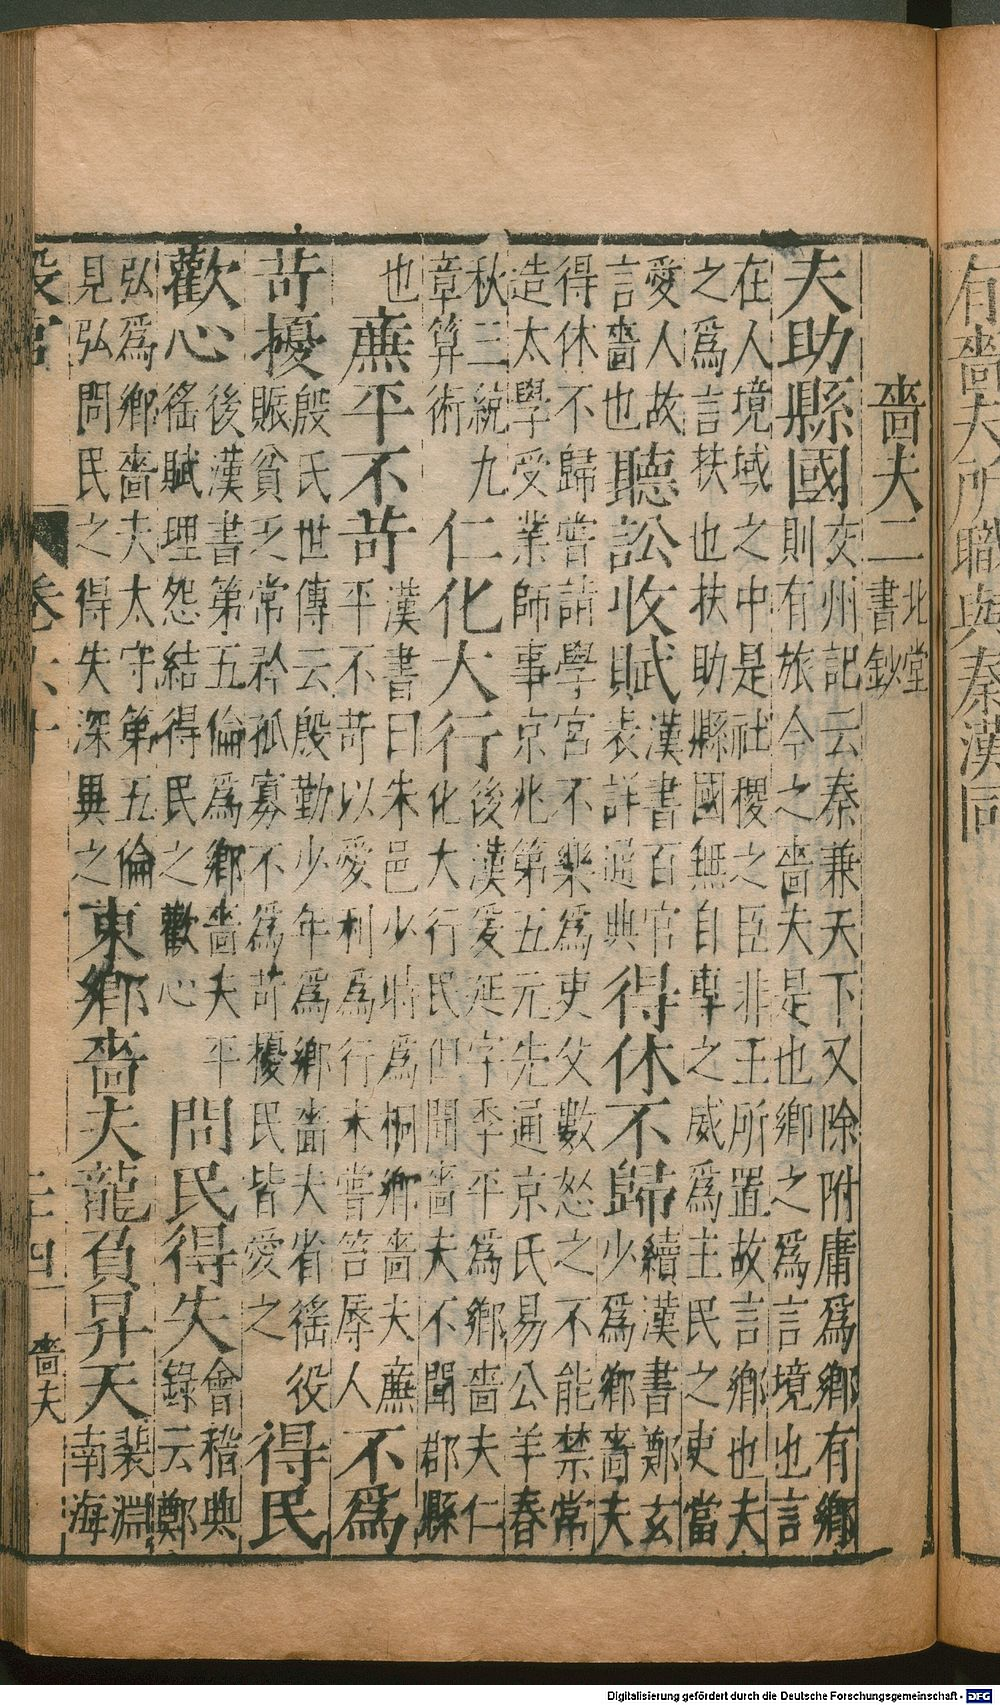 有嗇夫所職與秦漢同
嗇夫二 北堂書鈔
夫助縣國 交州記云秦兼天下又除附庸爲鄉有鄉
則有旅今之嗇夫是也鄉之爲言境也言
在人境域之中是社稷之臣非王所置故言鄉也夫
之爲言扶也扶助縣國無自專之威爲主民之吏當
愛人故言嗇也 聽訟收賦 漢書百官表詳通典 得休不歸 續漢書鄭玄少爲鄉嗇夫
得休不歸嘗詣學宮不樂爲吏父數怒之不能禁常
造太學受業師事京兆第五元先通京氏易公羊春
秋三統九章算術 仁化大行 後漢爰延字季平爲鄉嗇夫仁化大行民但聞嗇夫不聞郡縣
也 廉平不苛 漢書曰朱邑少時爲桐鄉嗇夫廉平不苛以愛利爲行未嘗笞辱人 不爲
苛擾 殷氏世傳云殷勤少年爲鄉嗇夫省徭役賑貧乏常矜孤寡不爲苛擾民皆愛之 得民
歡心 後漢書第五倫爲鄉嗇夫平徭賦理怨結得民之歡心 問民得失 會稽典錄云鄭
弘爲鄉嗇夫太守第五倫見弘問民之得失深異之 東鄉嗇夫龍負昇天 裴淵南海
設官 卷 嗇夫
Digitalisierung gefördert durch die Deutsche Forschungsgemeinschaft - DFG